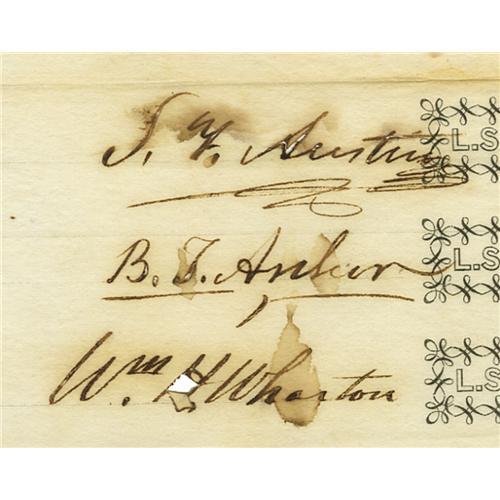 S. F. Austin L.S
B. T. Archer L.S
Wm H Wharton L.S